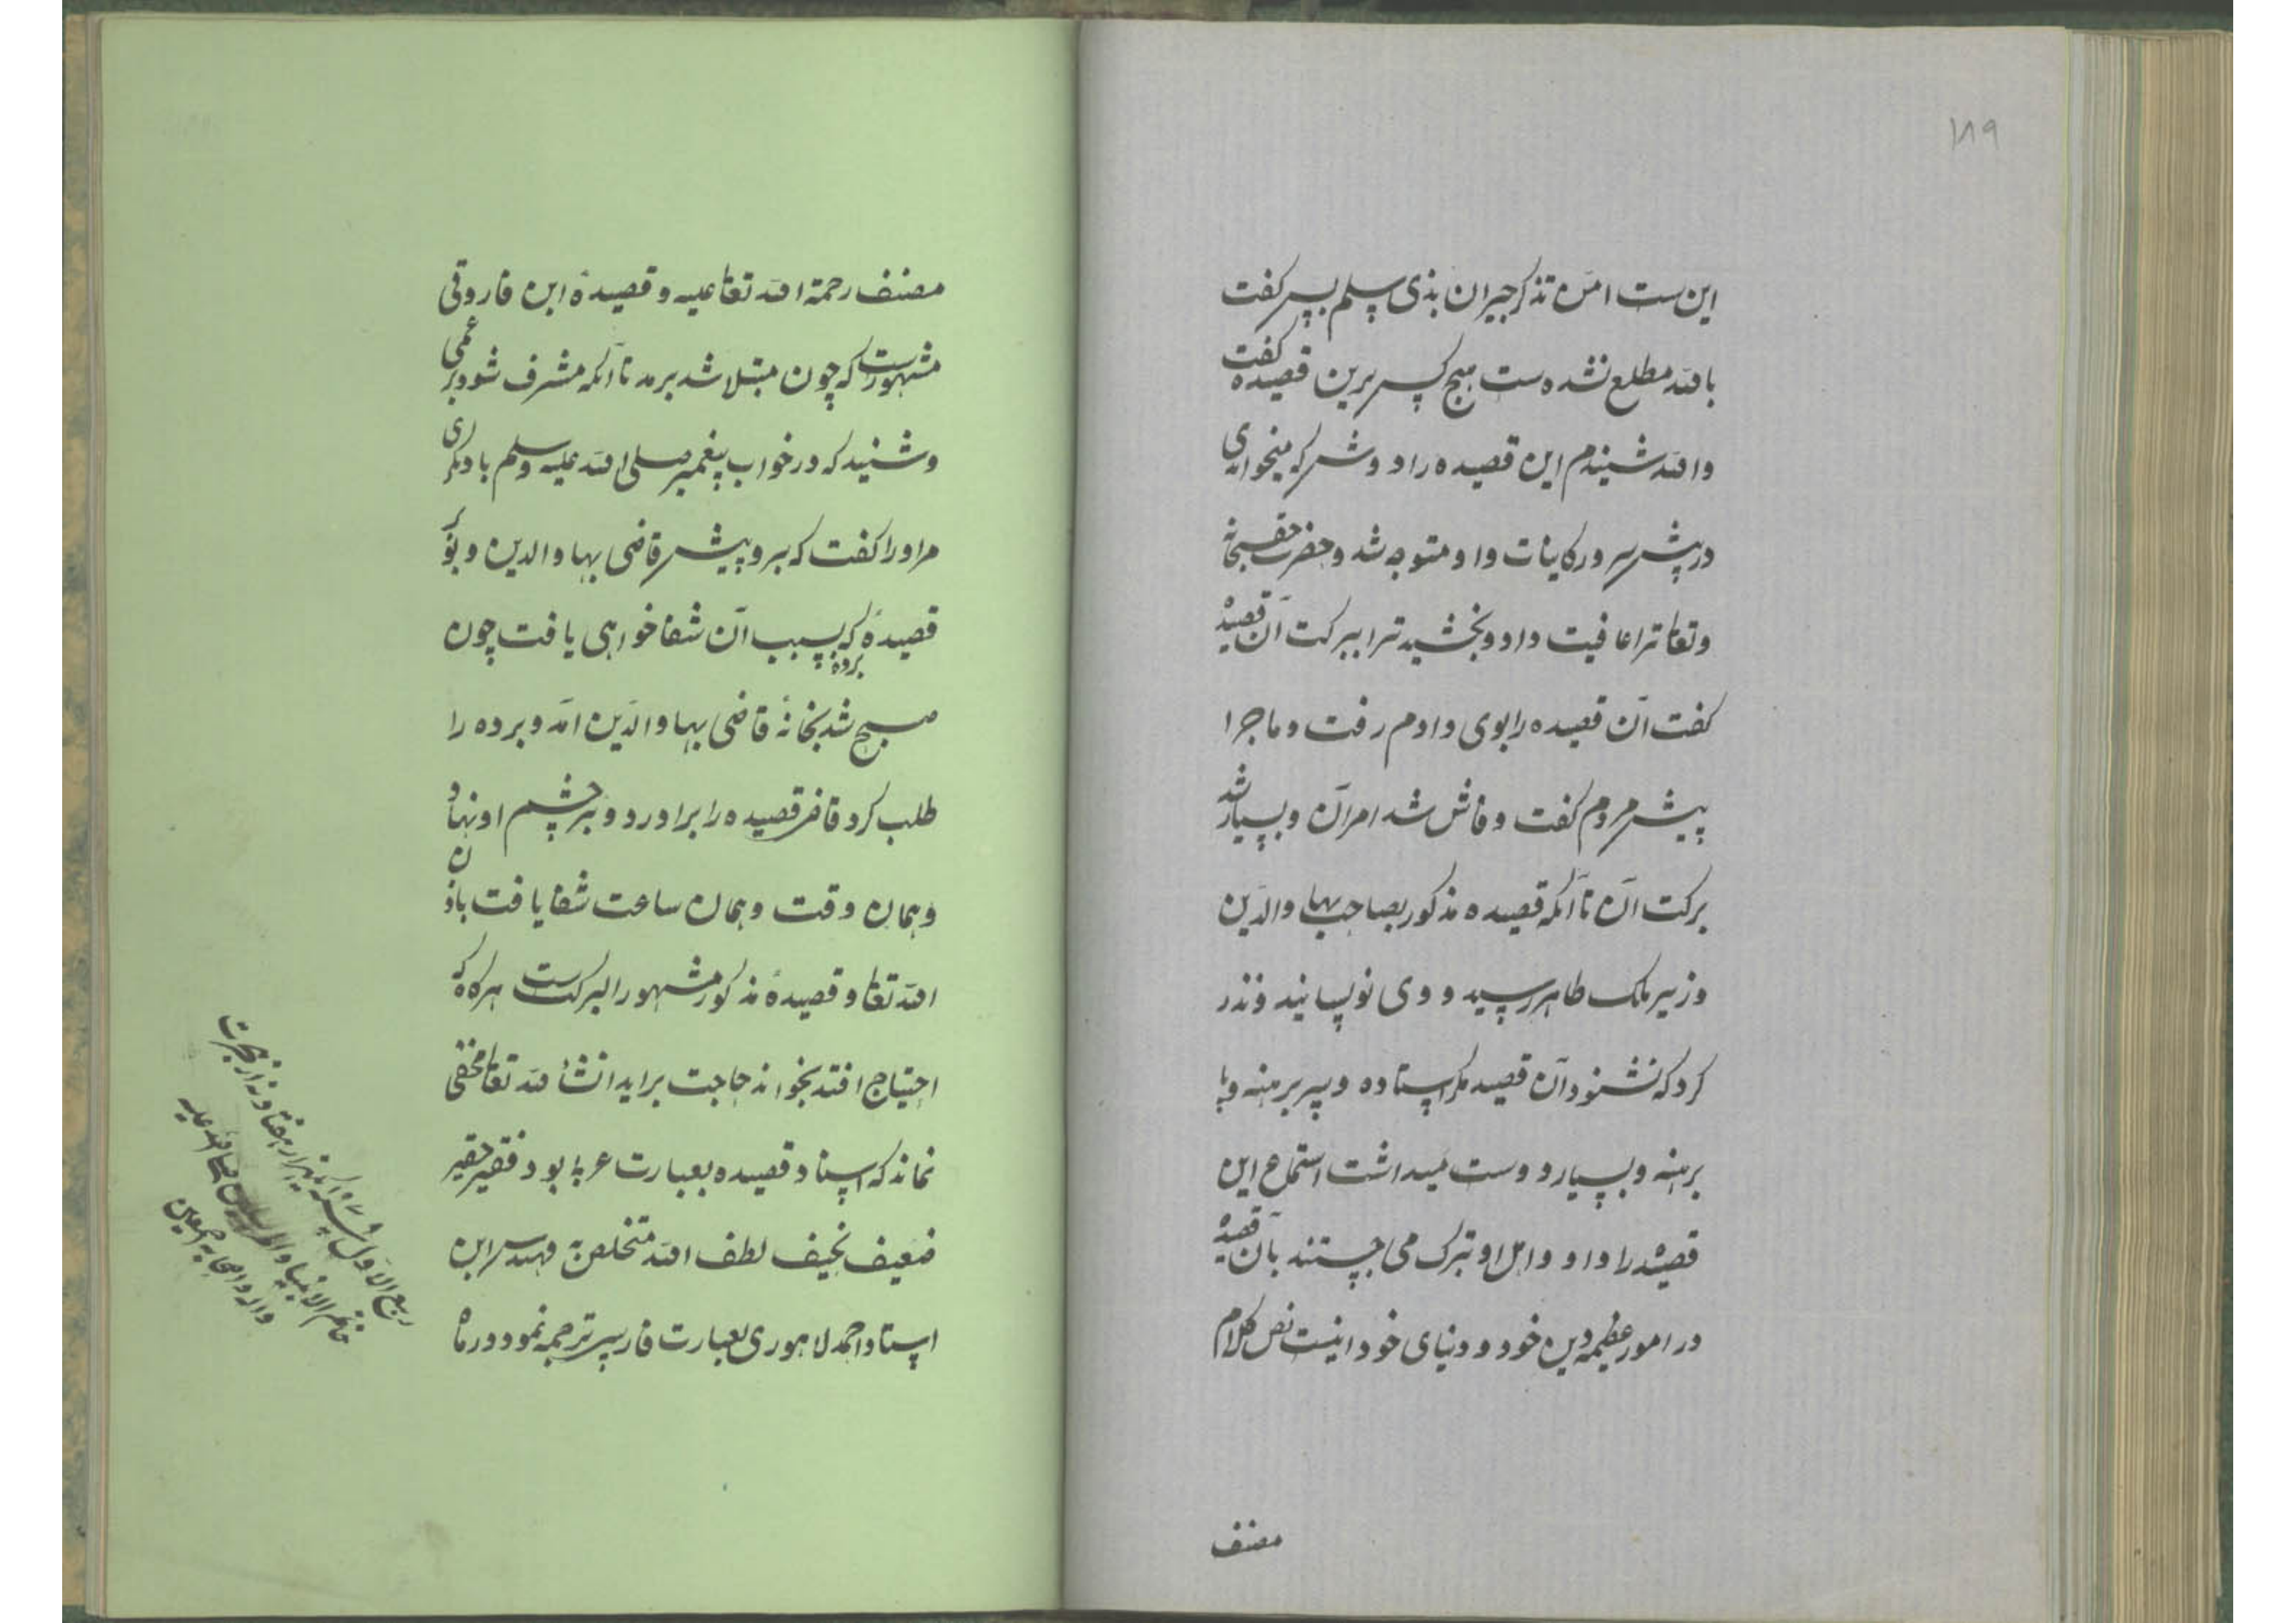 ۱۸۹
این ست امن تذکر جیران بذی سلم پس گفت
بالله مطلع نشده ست هیچ کس برین قصیده گفت
والله شنیدم این قصیده را دوش که میخواندی
در پیش سرور کاینات و او متوجه شد و حضرت حق سبحانه
و تعالی ترا عافیت داد و بخشید ترا ببرکت آن قصیده
گفت آن قصیده را بوی دادم رفت و ماجرا
پیش مردم گفت و فاش شد امر آن و بسیار شد
برکت آن تا آنکه قصیده مذکور بصاحب بهاو الدین
وزیر ملک طاهر رسید و وی نویسانید و نذر
کرد که نشنود آن قصیده مگر استاده و سر برهنه و پا
برهنه و بسیار دوست میداشت استماع این
قصیده را و او و اهل او تبرک می جستند بآن قصیده
در امور عظیمه دین خود و دنیای خود اینست نص کلام
مصنف
مصنف رحمة الله تعالی علیه و قصیدهٔ ابن فاروقی
مشهورست که چون مبتلا شد برمد تا آنکه مشرف شود بر عمی
و شنید که در خواب پیغمبر صلی الله علیه وسلم با دیگری
مر او را گفت که برو پیش قاضی بهاو الدین و بگو
قصیدهٔ برده که بسبب آن شفا خواهی یافت چون
صبح شد بخانهٔ قاضی بهاو الدین آمد و برده را
طلب کرد قاضی قصیده را برآورد و بر چشم او نهاد
و همان وقت و همان ساعت شفا یافت باذن
الله تعالی و قصیدهٔ مذکور مشهور البرکتست هرگاه که
احتیاج افتد بخواند حاجت براید انشأ الله تعالی مخفی
نماند که اسناد قصیده بعبارت عربی بود فقیر حقیر
ضعیف نحیف لطف الله متخلص به مهندس ابن
استاد احمد لاهوری بعبارت فارسی ترجمه نمود در ماه
ربیع الاول سنه یکهزار و هفتاد و نه از هجرت
خاتم الانبیا والمرسلین صلی الله علیه
واله واصحابه اجمعین